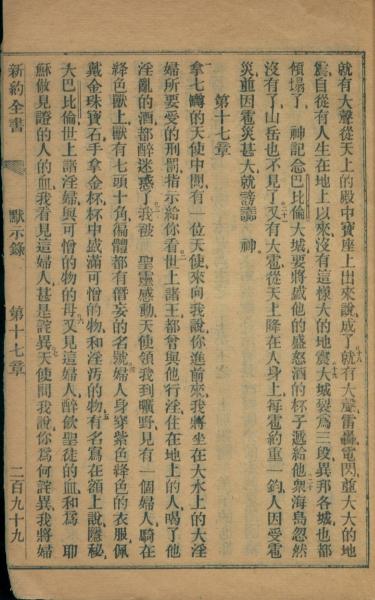 就有大聲從天上的殿中寶座上出來說成了就有大聲雷轟電閃並大大的地
震自從有人生在地上以來沒有這樣大的地震大城裂為三段異邦各城也都
傾塌了　神記念巴比倫大城要將盛他的盛怒酒的杯子遞給他衆海島忽然
沒有了山岳也不見了又有大雹從天上降在人身上每雹約重一鈞人因受雹
災並因雹災甚大就謗讟　神
第十七章
拿七罇的天使中間有一位天使來向我說你進前來我將坐在大水上的大淫
婦所要受的刑罰指示給你看世上諸王都曾與他行淫住在地上的人喝了他
淫亂的酒都醉迷惑了我被　聖靈感動天使領我到曠野見有一個婦人騎在
絳色獸上獸有七頭十角徧體都有僭妄的名號婦人身穿紫色絳色的衣服佩
戴金珠寶石手拿金杯杯中盛滿可憎的物和淫汚的物有名寫在額上說隱秘
大巴比倫世上諸淫婦與可憎的物的母又見這婦人醉飲聖徒的血和為　耶
穌做見證的人的血我看見這婦人甚是詫異天使問我說你為何詫異我將婦
新約全書　默示錄　第十七章　二百九十九